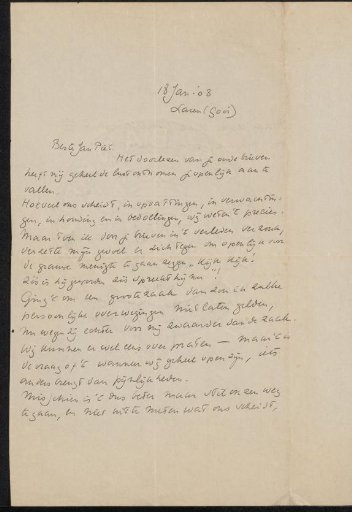 18 Jan. '08
Laren (Gooi)
Beste Jan Piet.
Het doorlezen van je oude brieven
heeft mij geheel de lust ontnomen je openlijk aan te
vallen.
Hoeveel ons scheidt, in opvattingen, in verwachtin-
gen, in houding en in bedoelingen, wij weten 't precies.
Maar toen ik door je brieven in 't verleden verzonk,
verzette mijn gevoel er zich tegen om openlijk voor
de grauwe menigte te gaan zeggen „Kijk, kijk!
zóó is hij geworden, zóó spreekt hij nu"
Ging 't om een groote zaak dan zou ik zulke
persoonlijke overwegingen niet laten gelden,
nu wegen zij echter voor mij zwaarder dan de zaak.
Wij kunnen er wel eens over praten — maar 't is
de vraag of 't wanneer wij geheel open zijn, iets
anders brengt dan pijnlijkheden.
Misschien is 't ons beter maar stil onzen weg
te gaan, en niet uit te meten wat ons scheidt,